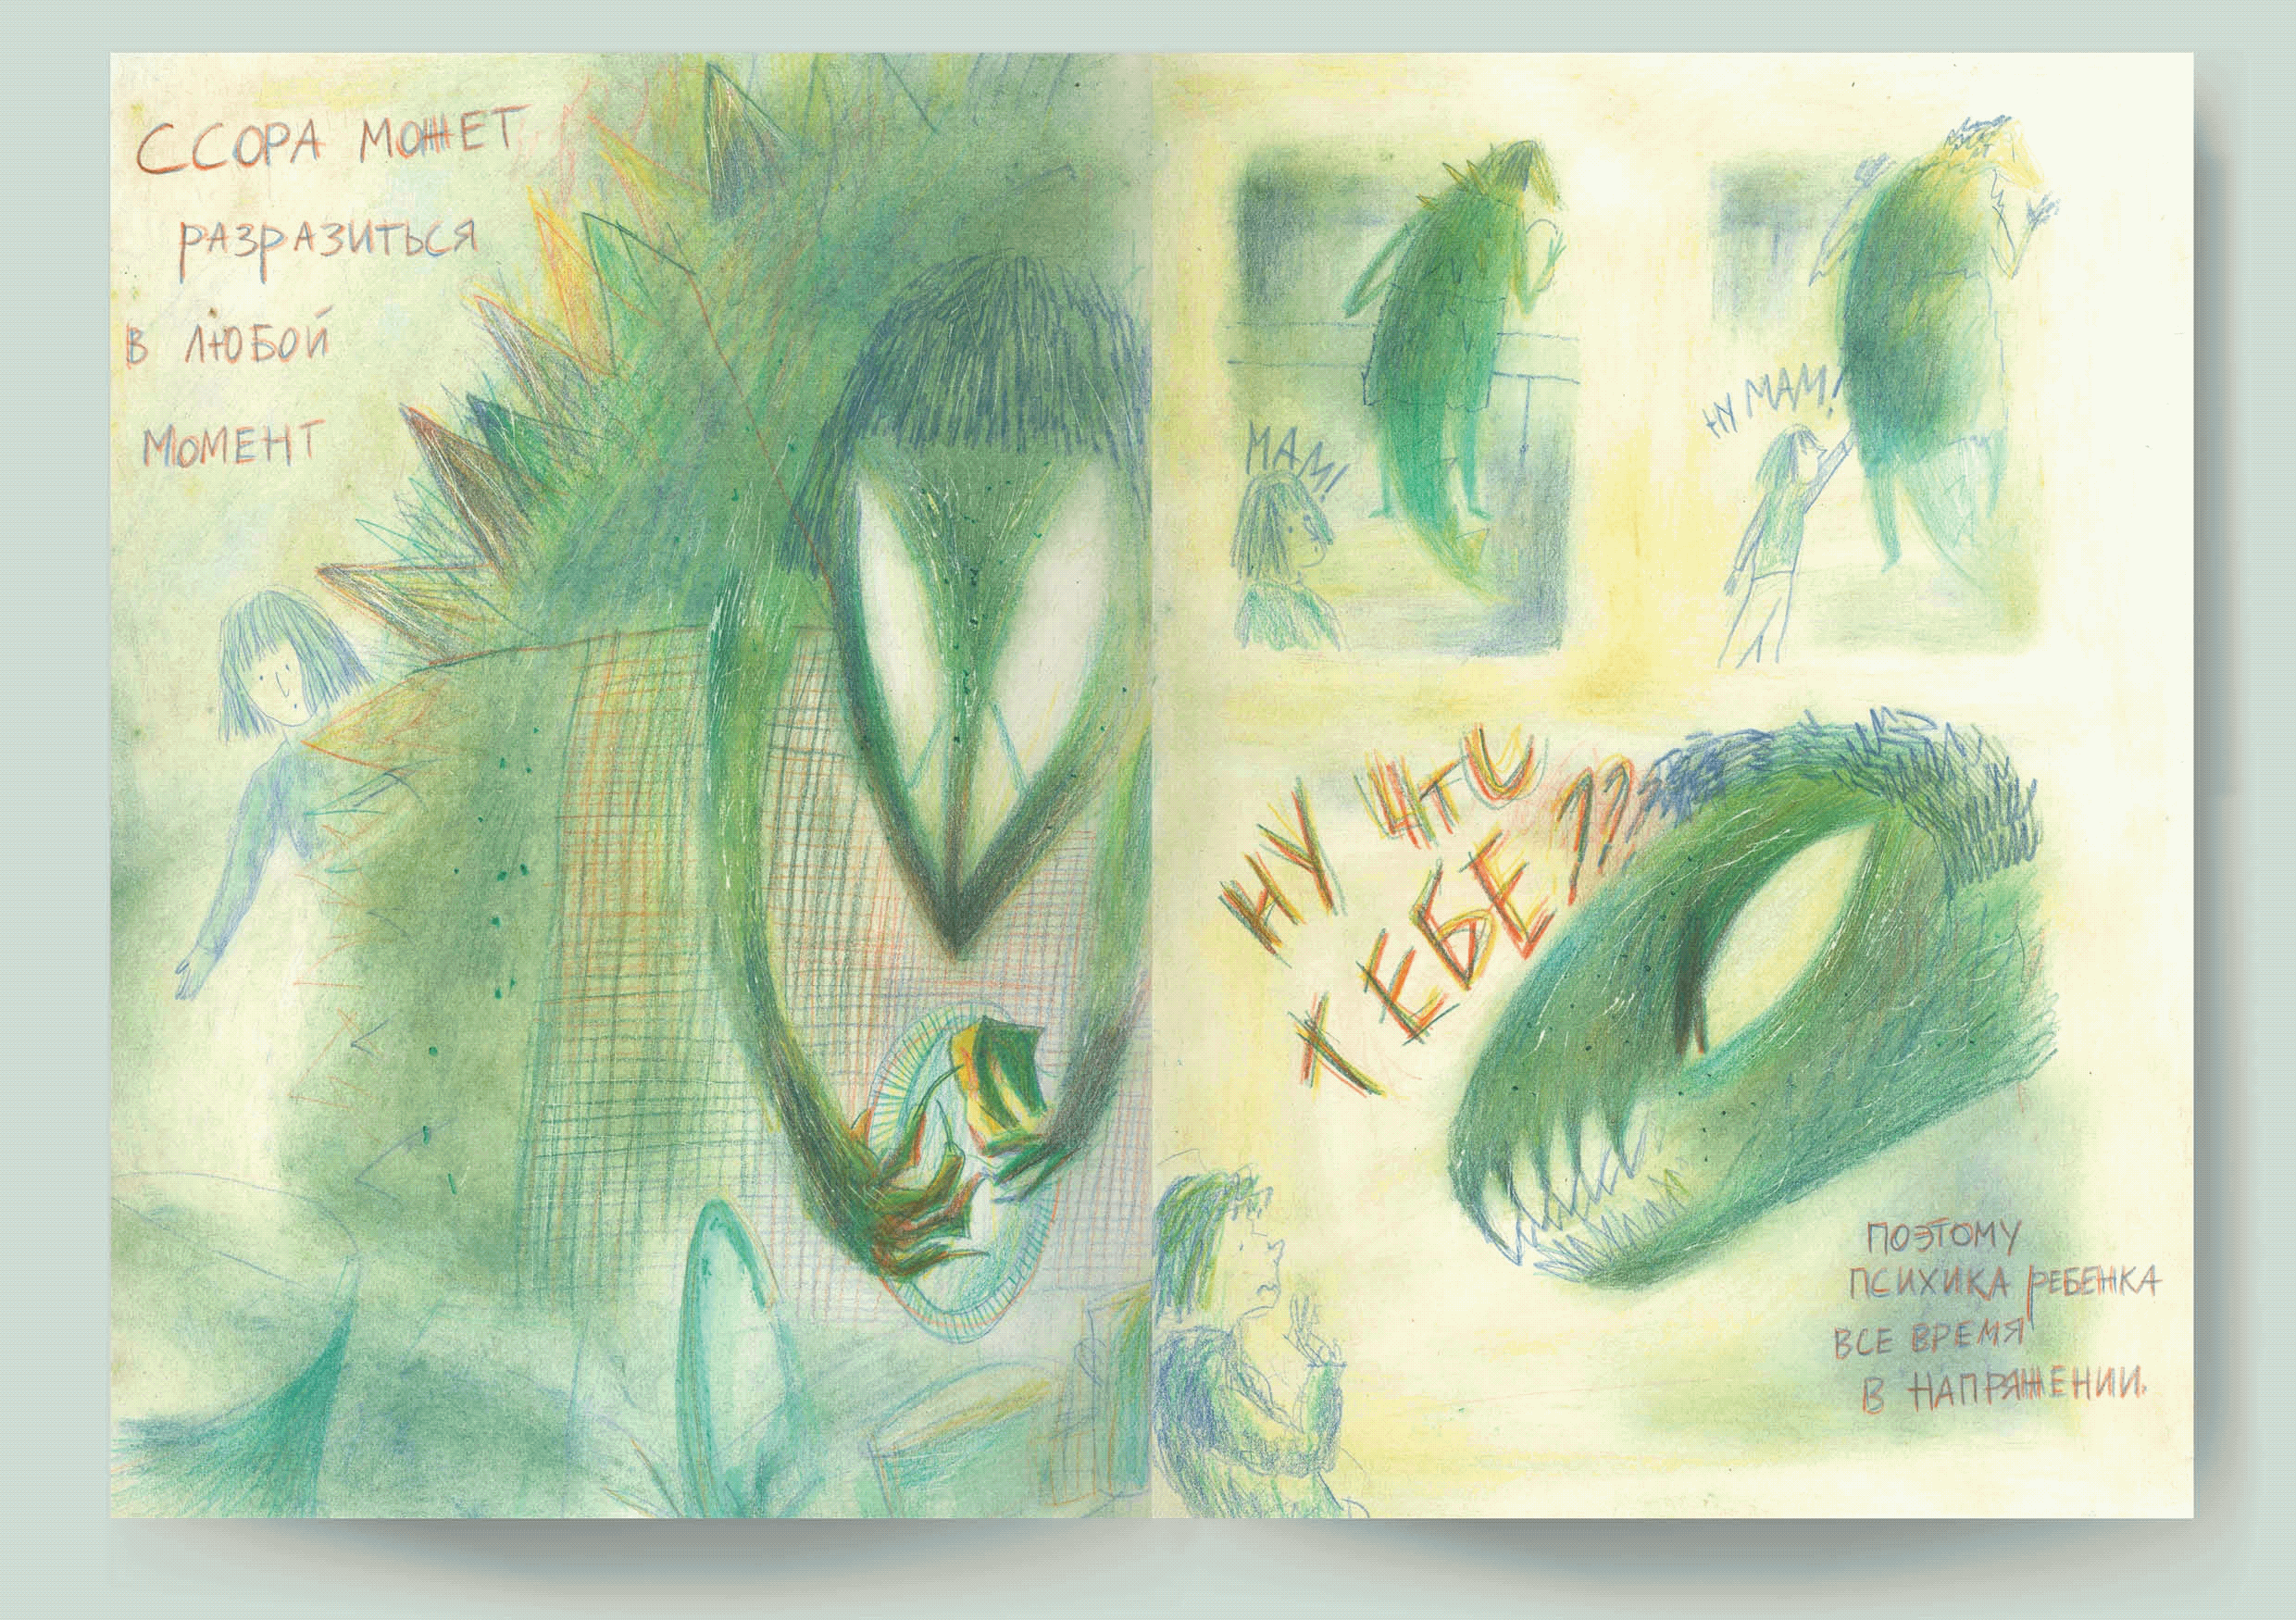 ССОРА МОЖЕТ
РАЗРАЗИТЬСЯ
В ЛЮБОЙ
МОМЕНТ
МАМ!
НУ МАМ!
НУ ЧТО
ТЕБЕ??
ПОЭТОМУ
ПСИХИКА РЕБЕНКА
ВСЕ ВРЕМЯ
В НАПРЯЖЕНИИ.